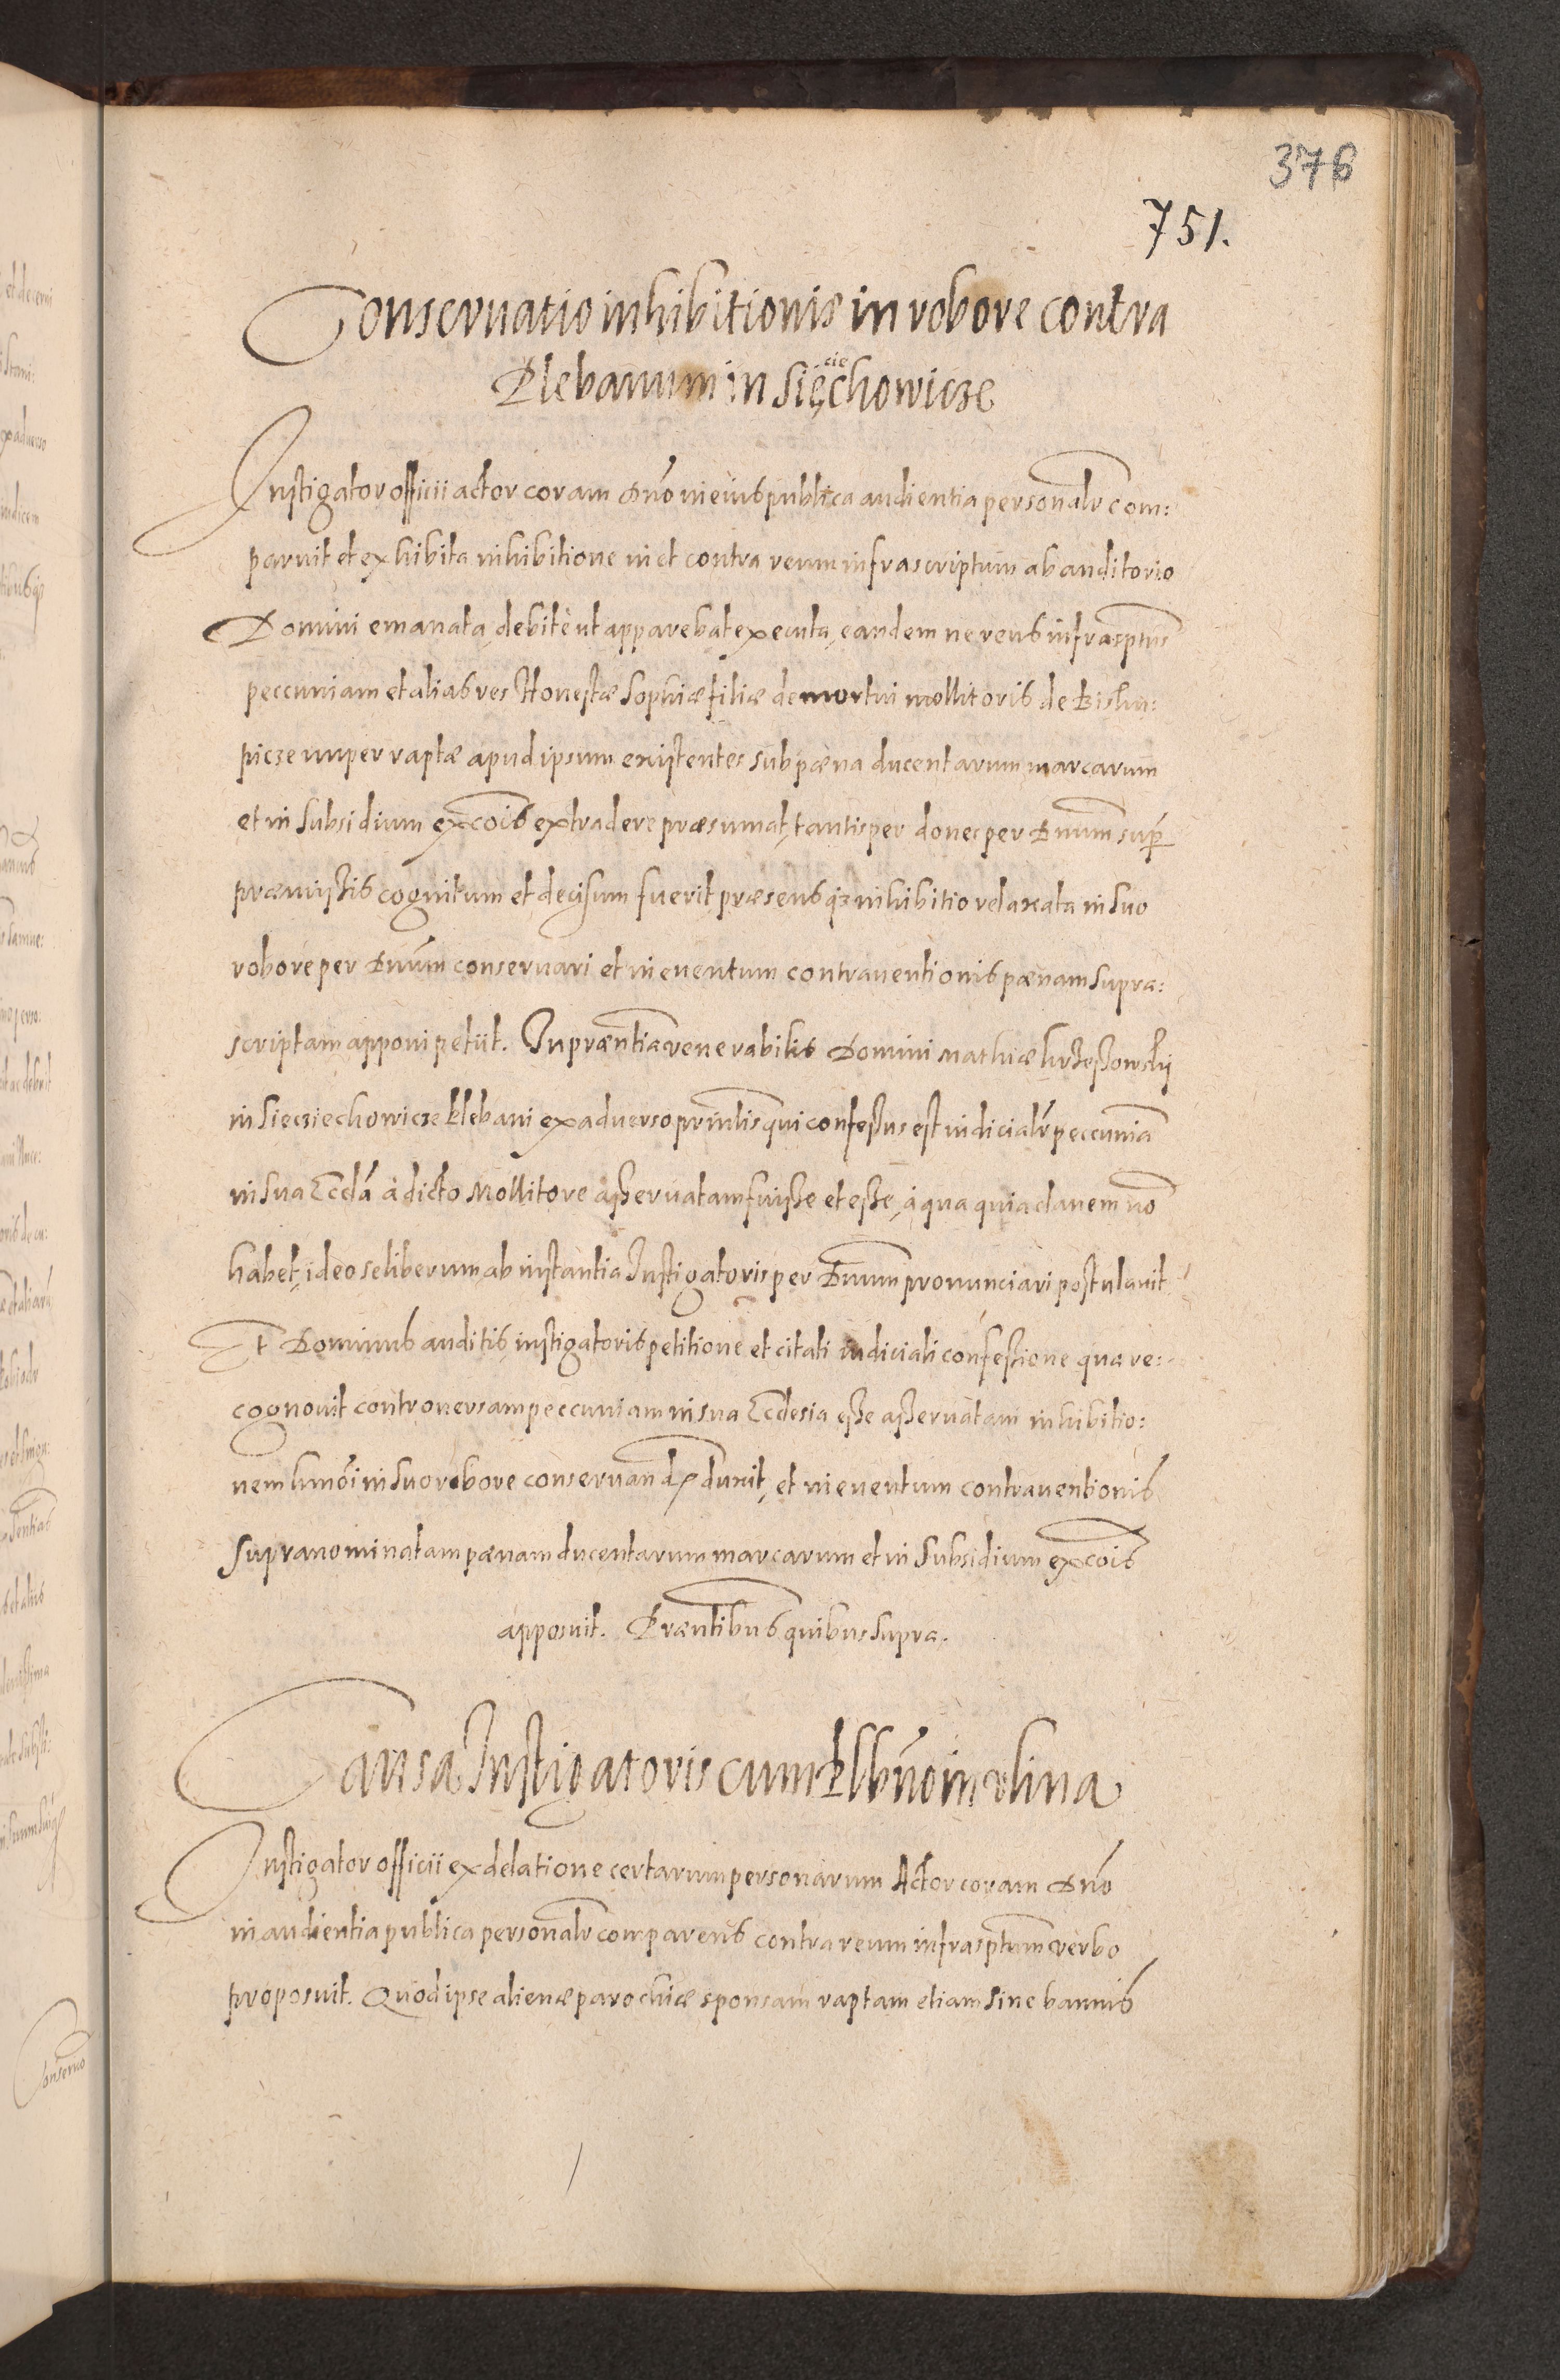 376
751.
Conseruatio inhibitionis in robore contra
Plebanum in Sięciechowicze
Instigator officii actor coram Dnō in eius publica audientia personalr com:
paruit et exhibita inhibitione in et contra reum infrascriptum ab auditorio
Domini emanata, debitè ut apparebat executa, eandem ne reus infrascptus
peccuniam et alias res Honestæ Sophiæ filiæ demortui mollitoris de Biskú:
picze nuper raptæ apud ipsum existentes sub pæna ducentarum marcarum
et in subsidium excois extradere præsumat, tantisper donec per Dnum sup
præmissis cognitum et decisum fuerit præsensq3 inhibitio relaxata in suo
robore per Dnūm conseruari et in euentum contrauentionis pænam supra:
scriptam apponi petiit. In præntia venerabilis Domini Mathiæ
in Siecziechowicze Plebani ex aduerso prīnlis qui confessus est iudicialr peccuniā
in sua Eccłā à dicto Mollitore asseruatam fuisse et esse, à qua quia clauem nō
habet, ideo se liberum ab instantia Instigatoris per Dnum pronunciari postulauit
Et Dominus auditis instigatoris petitione et citati iudiciali confessione qua re:
cognouit controuersam peccuniam in sua Ecclesia esse asseruatam inhibitio:
nem hmōi in suo robore conseruand duxit, et in euentum contrauentionis
supranominatam pænam ducentarum marcarum et in subsidium excois
apposuit. Præntibus quibus supra.
Causa Instigatoris cum Plbnō in Vlina
Instigator officii ex delatione certarum personarum Actor coram Dnō
in audientia publica personalr comparens contra reum infrascptum verbo
proposuit. Quod ipse alienæ parochiæ sponsam raptam etiam sine bannis